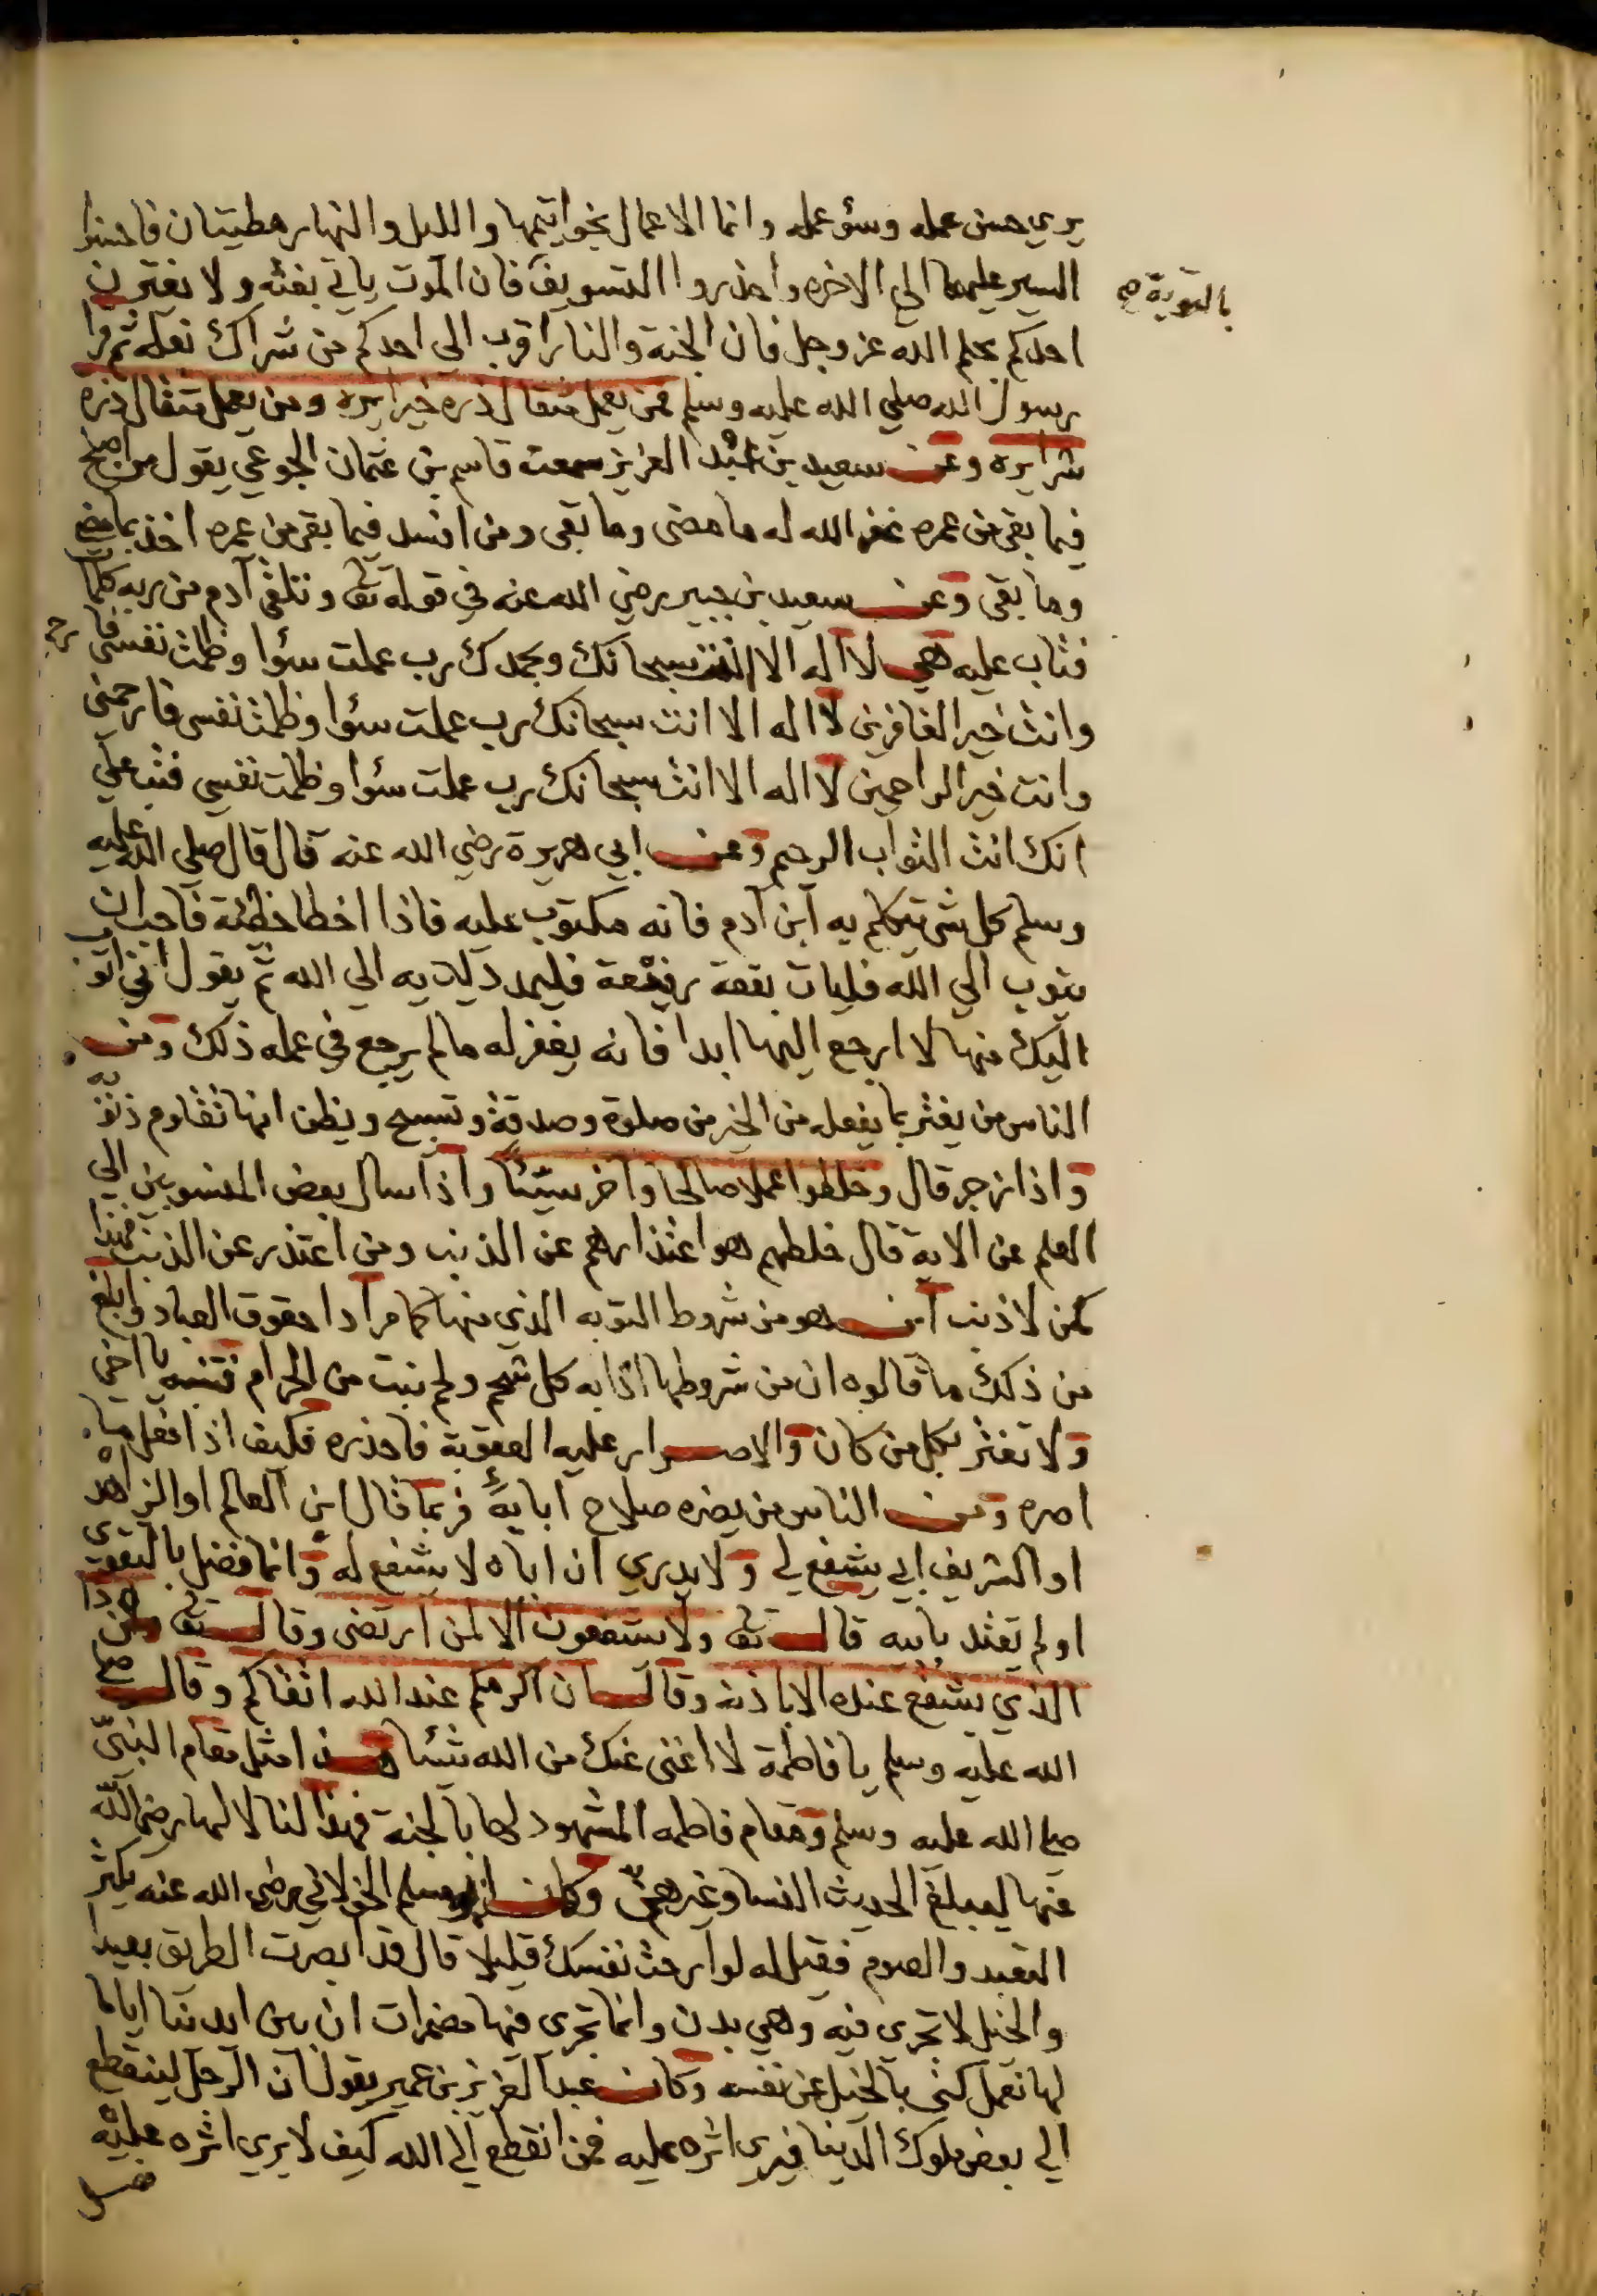 يري حسن عمله وسؤ عمله وانما الاعمال بخواتيمها والليل والنهار مطيتان فاحسنوا
السير عليهما الي الاخره واحذروا التسويف فان الموت ياتي بغثه ولا يغترن
بالتوبة صح
احدكم بحلم الله عز وجل فان الجنة والنار اقرب الي احدكم من شراك نعله ثم قرا
رسول الله صلي الله عليه وسلم فمن يعمل مثقال ذره خيرا يره ومن يعمل مثقال ذره
شرا يره وعن سعيد بن عبد العزيز سمعت قاسم بن عثمان الجوعي يقول من اصلح
فيما بقي من عمره غفر الله له ما مضى وما بقى ومن افسد فيما بقي من عمره اخذ بما مضي
وما بقى وعن سعيد بن جبير رضي الله عنه في قوله تعا فتلقى آدم من ربه كلمات
فتاب عليه هي لا اله الا انت سبحانك وبحمدك رب عملت سؤا وظلمت نفسي فارحم
وانت خير الغافرين لا اله الا انت سبحانك رب عملت سؤا وظلمت نفسي فارحمني
وانت خير الراحمين لا اله الا انت سبحانك رب عملت سؤا وظلمت نفسي فتب علي
انك انت التواب الرحيم وعن ابي هريرة رضي الله عنه قال قال صلى الله عليه
وسلم كل شئ تيكلم به آبن آدم فانه مكتوب عليه فاذا اخطا خطئة فاحب ان
يتوب الي الله فليات بقعة رفيعة فليمد يديه الي الله ثم يقول اني اتوب
اليك منها لا ارجع اليها ابدا فانه يغفر له مالم يرجع في عمله ذلك ومن
الناس من يغتر بما يفعله من الخير من صلوة وصدقة وتسبيح ويظن انها تقاوم ذنوبه
واذا زجر قال وخلطوا عملا صالحا وآخر سيئا واذا سال بعض المنسوبين الي
العلم عن الاية قال خلطهم هو اعتذارهم عن الذنب ومن اعتذر عن الذنب فهذا
كمن لا ذنب اين هو من شروط التوبه الذي منها كما مر ادا حقوق العباد وابلغ
من ذلك ما قالوه ان من شروطها اذابه كل شحم ولحم نبت من الحرام فتنبه يا اخي
ولا تغتر بكل من كان والاصرار عليه العقوبة فاحذره فكيف اذا فعل
اصره ومن الناس من يضره صلاح ابايه فربما قال ابن العالم او الزاهد
او الشريف ابي يشفع لي ولا يدري ان اباه لا يشفع له وانما فضل بالتقوى
اولم يقتد بابيه قال تعا ولا يشفعون الا لمن ارتضى وقال تعا من ذا
الذي يشفع عنده الا باذنه وقال ان اكرمكم عند الله اتقاكم وقال صلى
الله عليه وسلم يا فاطمة لا اغنى عنك من الله شئا ومن امثل مقام النبي
صلى الله عليه وسلم ومقام فاطمه المشهود لها بالجنة فهذا لنا لا لها رضي الله
عنها ليبلغ الحديث النسا وغيرهن وكان ابو مسلم الخولاني رضي الله عنه يكثر
التعبد والصوم فقيل له لو آرحت نفسك قليلا قال قد ابصرت الطريق بعيدا
والخيل لا تجري فيه وهي بدن وانما تجري فيها مضمرات ان بين ايدينا اياما
لها نعمل كنى بالخيل عن نفسه وكان عبد العزيز بن عمير يقول ان الرجل لينقطع
الي بعض ملوك الدينا فيرى اثره عليه فمن انقطع الي الله كيف لا يري اثره عليه